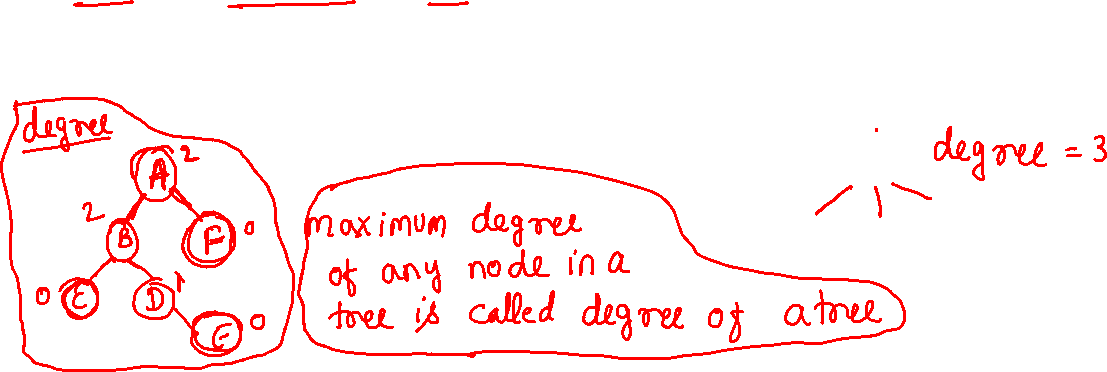 degree
A 2
2 B F 0
0 E D 1
0
maximum degree
of any node in a
tree is called degree of a tree
degree = 3